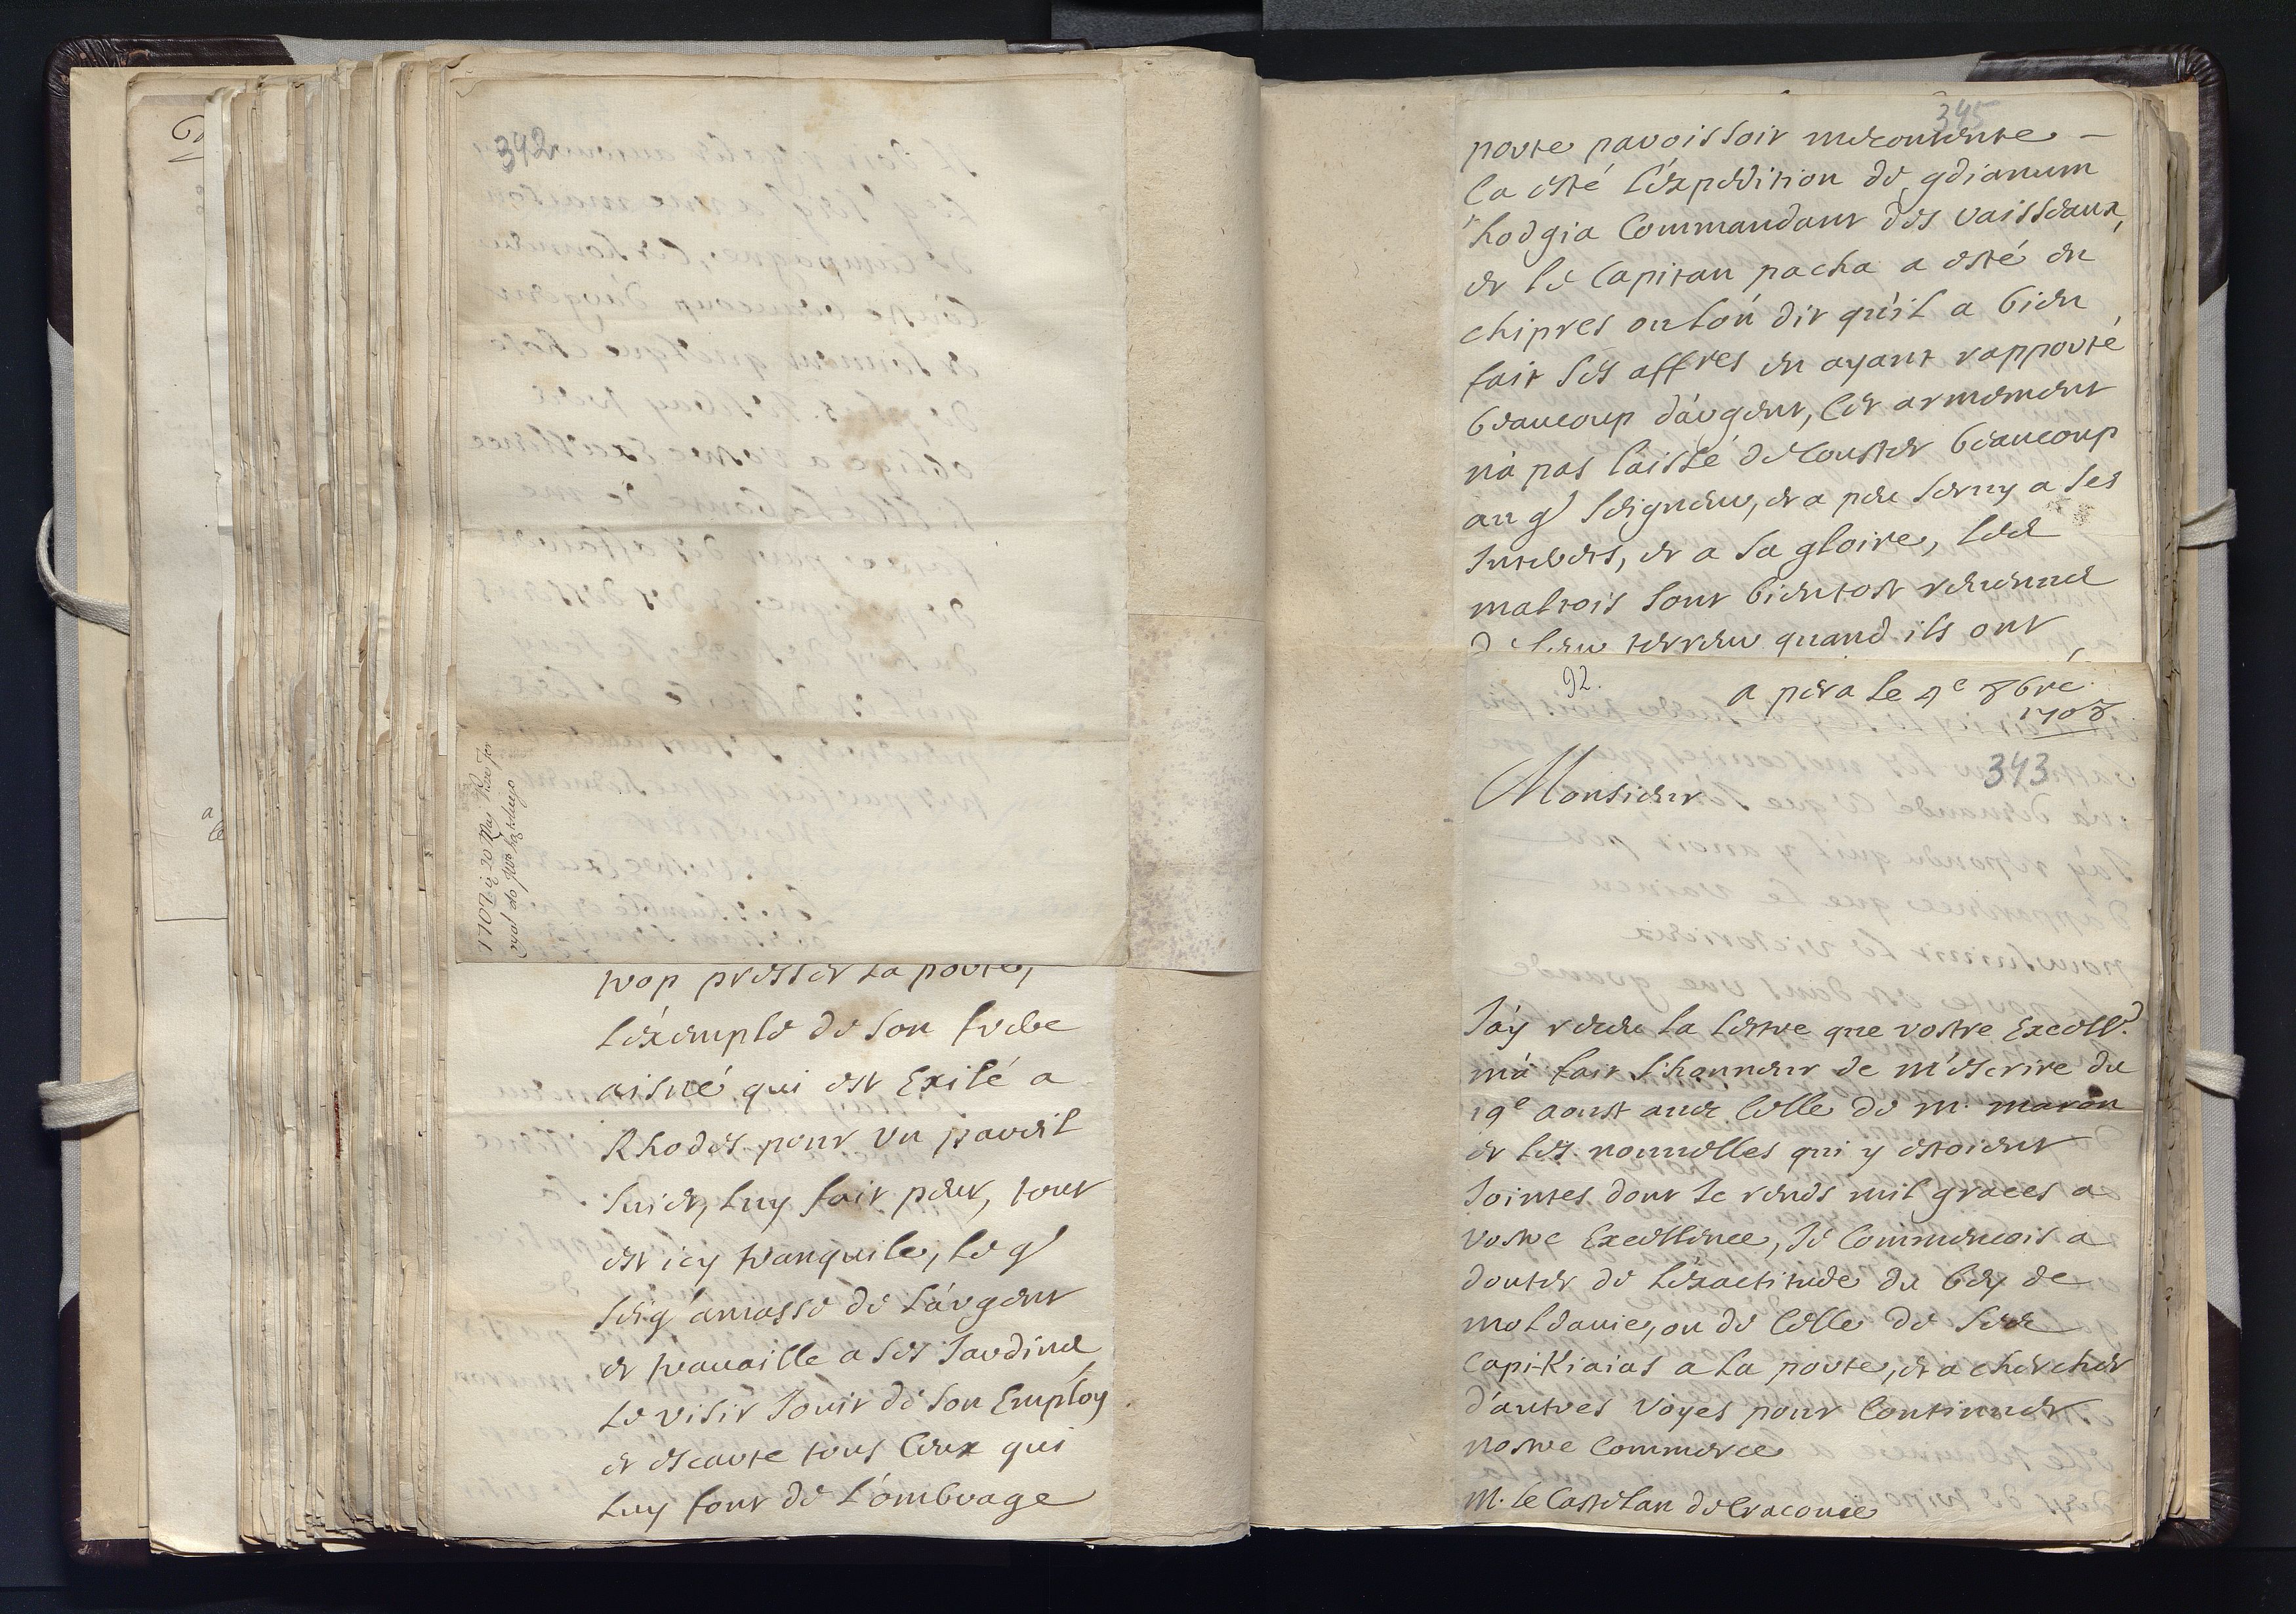 392
1707 20 May
trop presser la porte,
l'éxemple de son frere
aisné qui est Exilé a
Rhodes pour un pareil
suiet, luy fait peur, tout
est icy tranquile, le gd
seigr amasse de l'argent
et trauaille a ses Jardins
le visir Jouit de son Employ
et escarte tous ceux qui
luy font de l'ombrage
345
porte paroissoit mecontente
la esté l'éxpedition de gdianum
hodgia Commandant des vaisseaux,
et le Capitan pacha a esté en
chipres ou lón dit qu'il a bien
fait ses affres en ayant rapporté
beaucoup d'argent, cet armement
n'a pas laissé de Couster beaucoup
au gd seigneur, et a peu seruy a ses
Interets, et a sa gloire, les
maltois sont bientost reuenus
de leur terreur quand ils ont
92.
a pera le 4e 8bre
1708
343
Monsieur
J'ay receu la lettre que vostre Excelle
m'a fait l'honneur de m'escrire du
19e aoust auec celle de m. maron
et les nouuelles qui y estoient
Jointes dont Je rends mil graces a
vostre Excellence, Je Commencois a
douter de l'exactitude du bey de
moldauie, ou de celle de ses
Capikiaias a la porte, et a chercher
d'autres voyes pour Continuer
nostre Commerce
M. le Castelan de Cracouie